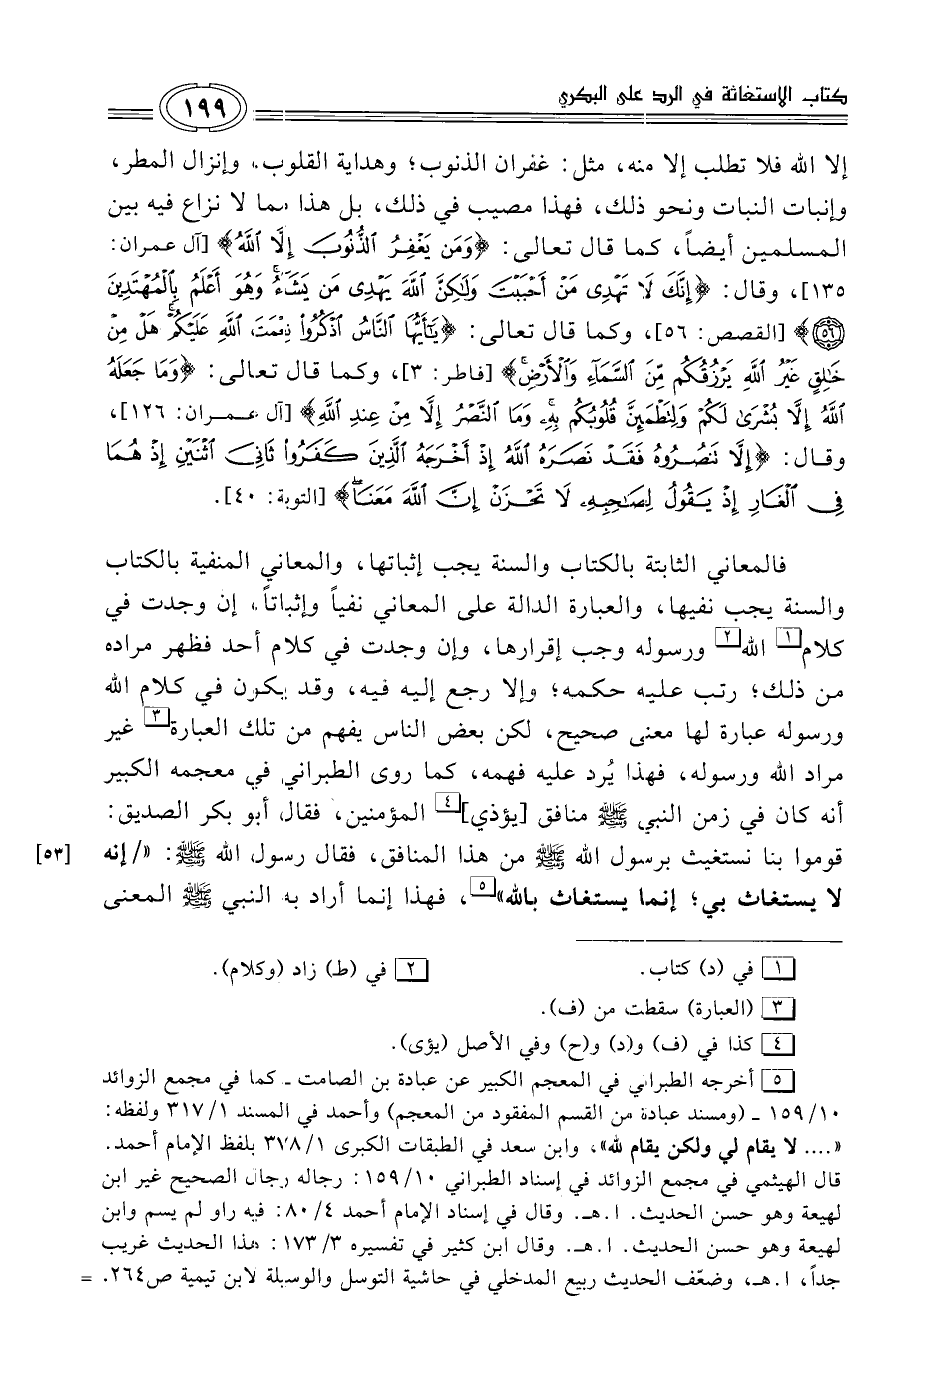 كتاب الاستغاثة في الرد على البكري
١٩٩
إلا الله فلا تطلب إلا منه، مثل: غفران الذنوب؛ وهداية القلوب، وإنزال المطر،
وإنبات النبات ونحو ذلك، فهذا مصيب في ذلك، بل هذا مما لا نزاع فيه بين
المسلمين أيضاً، كما قال تعالى: ﴿وَمَن يَغْفِرُ ٱلذُّنُوبَ إِلَّا ٱللَّهُ﴾ [آل عمران:
١٣٥]، وقال: ﴿إِنَّكَ لَا تَهْدِى مَنْ أَحْبَبْتَ وَلَٰكِنَّ ٱللَّهَ يَهْدِى مَن يَشَآءُ وَهُوَ أَعْلَمُ بِٱلْمُهْتَدِينَ
٥٦﴾ [القصص: ٥٦]، وكما قال تعالى: ﴿يَٰٓأَيُّهَا ٱلنَّاسُ ٱذْكُرُوا۟ نِعْمَتَ ٱللَّهِ عَلَيْكُمْ هَلْ مِنْ
خَٰلِقٍ غَيْرُ ٱللَّهِ يَرْزُقُكُم مِّنَ ٱلسَّمَآءِ وَٱلْأَرْضِ﴾ [فاطر: ٣]، وكما قال تعالى: ﴿وَمَا جَعَلَهُ
ٱللَّهُ إِلَّا بُشْرَىٰ لَكُمْ وَلِتَطْمَئِنَّ قُلُوبُكُم بِهِۦ وَمَا ٱلنَّصْرُ إِلَّا مِنْ عِندِ ٱللَّهِ﴾ [آل عمران: ١٢٦]،
وقال: ﴿إِلَّا تَنصُرُوهُ فَقَدْ نَصَرَهُ ٱللَّهُ إِذْ أَخْرَجَهُ ٱلَّذِينَ كَفَرُوا۟ ثَانِىَ ٱثْنَيْنِ إِذْ هُمَا
فِى ٱلْغَارِ إِذْ يَقُولُ لِصَٰحِبِهِۦ لَا تَحْزَنْ إِنَّ ٱللَّهَ مَعَنَا﴾ [التوبة: ٤٠].
فالمعاني الثابتة بالكتاب والسنة يجب إثباتها، والمعاني المنفية بالكتاب
والسنة يجب نفيها، والعبارة الدالة على المعاني نفياً وإثباتاً، إن وجدت في
كلام[١] الله[٢] ورسوله وجب إقرارها، وإن وجدت في كلام أحد فظهر مراده
من ذلك؛ رتب عليه حكمه؛ وإلا رجع إليه فيه، وقد يكون في كلام الله
ورسوله عبارة لها معنى صحيح، لكن بعض الناس يفهم من تلك العبارة[٣] غير
مراد الله ورسوله، فهذا يُرد عليه فهمه، كما روى الطبراني في معجمه الكبير
أنه كان في زمن النبي ﷺ منافق [يؤذي][٤] المؤمنين، فقال أبو بكر الصديق:
قوموا بنا نستغيث برسول الله ﷺ من هذا المنافق، فقال رسول الله ﷺ: «/إنه [٥٣]
لا يستغاث بي؛ إنما يستغاث بالله»[٥]، فهذا إنما أراد به النبي ﷺ المعنى
[١] في (د) كتاب. [٢] في (ط) زاد (وكلام).
[٣] (العبارة) سقطت من (ف).
[٤] كذا في (ف) و(د) و(ح) وفي الأصل (يؤى).
[٥] أخرجه الطبراني في المعجم الكبير عن عبادة بن الصامت ـ كما في مجمع الزوائد
١٥٩/١٠ ـ (ومسند عبادة من القسم المفقود من المعجم) وأحمد في المسند ٣١٧/١ ولفظه:
«.... لا يقام لي ولكن يقام لله»، وابن سعد في الطبقات الكبرى ٣٧٨/١ بلفظ الإمام أحمد.
قال الهيثمي في مجمع الزوائد في إسناد الطبراني ١٥٩/١٠: رجاله رجال الصحيح غير ابن
لهيعة وهو حسن الحديث. ا.هـ. وقال في إسناد الإمام أحمد ٨٠/٤: فيه راو لم يسم وابن
لهيعة وهو حسن الحديث. ا.هـ. وقال ابن كثير في تفسيره ١٧٣/٣: هذا الحديث غريب
جداً، ا.هـ، وضعّف الحديث ربيع المدخلي في حاشية التوسل والوسيلة لابن تيمية ص٢٦٤. =